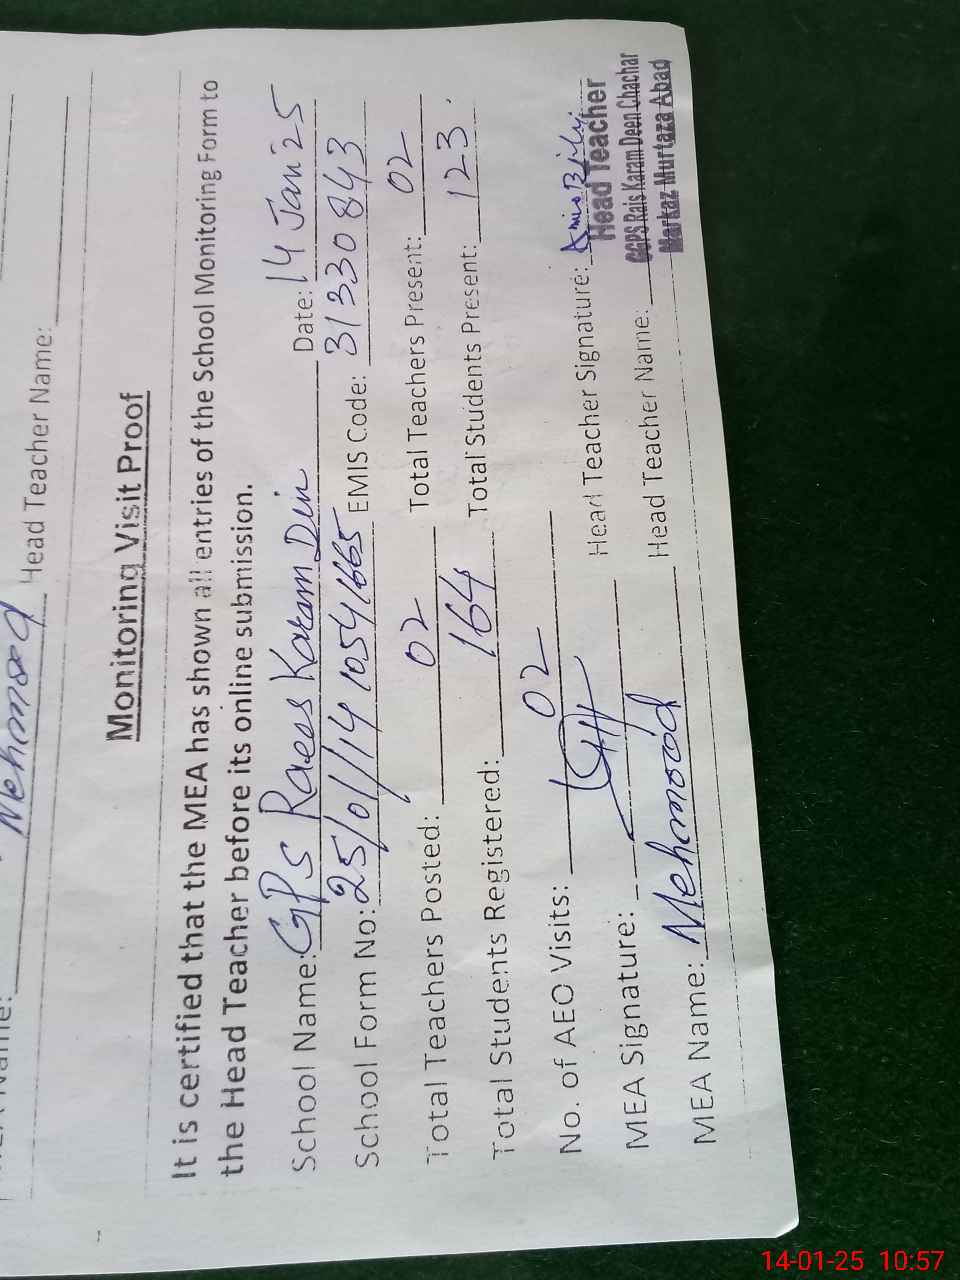 Mehmood Head Teacher Name:
Monitoring Visit Proof
It is certified that the MEA has shown all entries of the School Monitoring Form to
the Head Teacher before its online submission.
School Name: GPS Raees Karam Din Date: 14 Jan 25
School Form No: 25/01/14/1054/665 EMIS Code: 31330843
Total Teachers Posted: 02 Total Teachers Present: 02
Total Students Registered: 164 Total Students Present: 123.
No. of AEO Visits: 02
MEA Signature: Head Teacher Signature:
Head Teacher
GGPS Rais Karam Deen Chachar
Markaz Murtaza Abad
MEA Name: Mehmood Head Teacher Name:
14-01-25 10:57